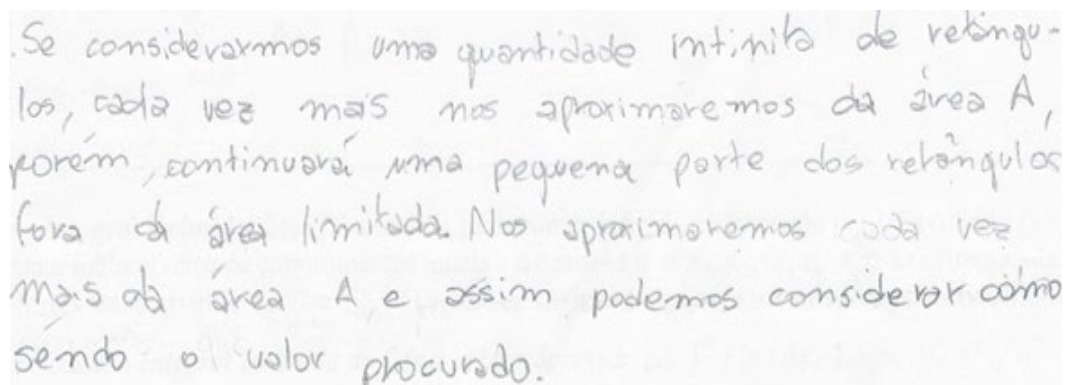 .Se considerarmos uma quantidade infinita de retângu-
los, cada vez mais nos aproximaremos da área A,
porém, continuará uma pequena parte dos retângulos
fora da área limitada. Nos aproximaremos cada vez
mais da área A e assim podemos considerar como
sendo o valor procurado.